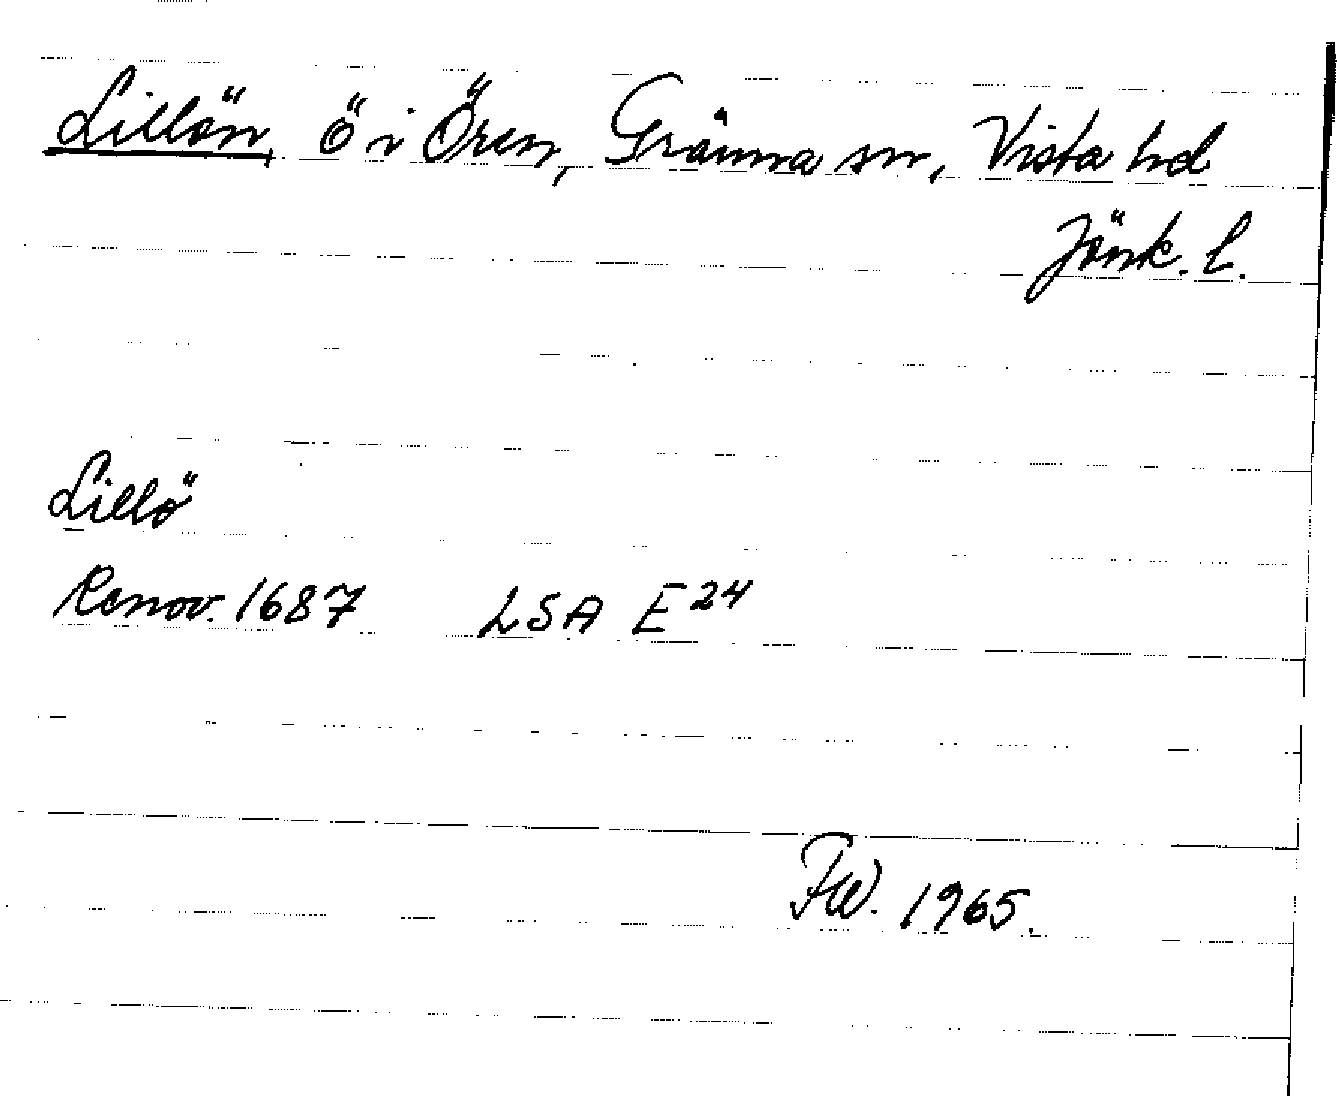 Lillön, ö i Ören, Gränna sn, Vista hd
Jönk. l.
Lillö
Renov. 1687 LSA E24
FW. 1965.